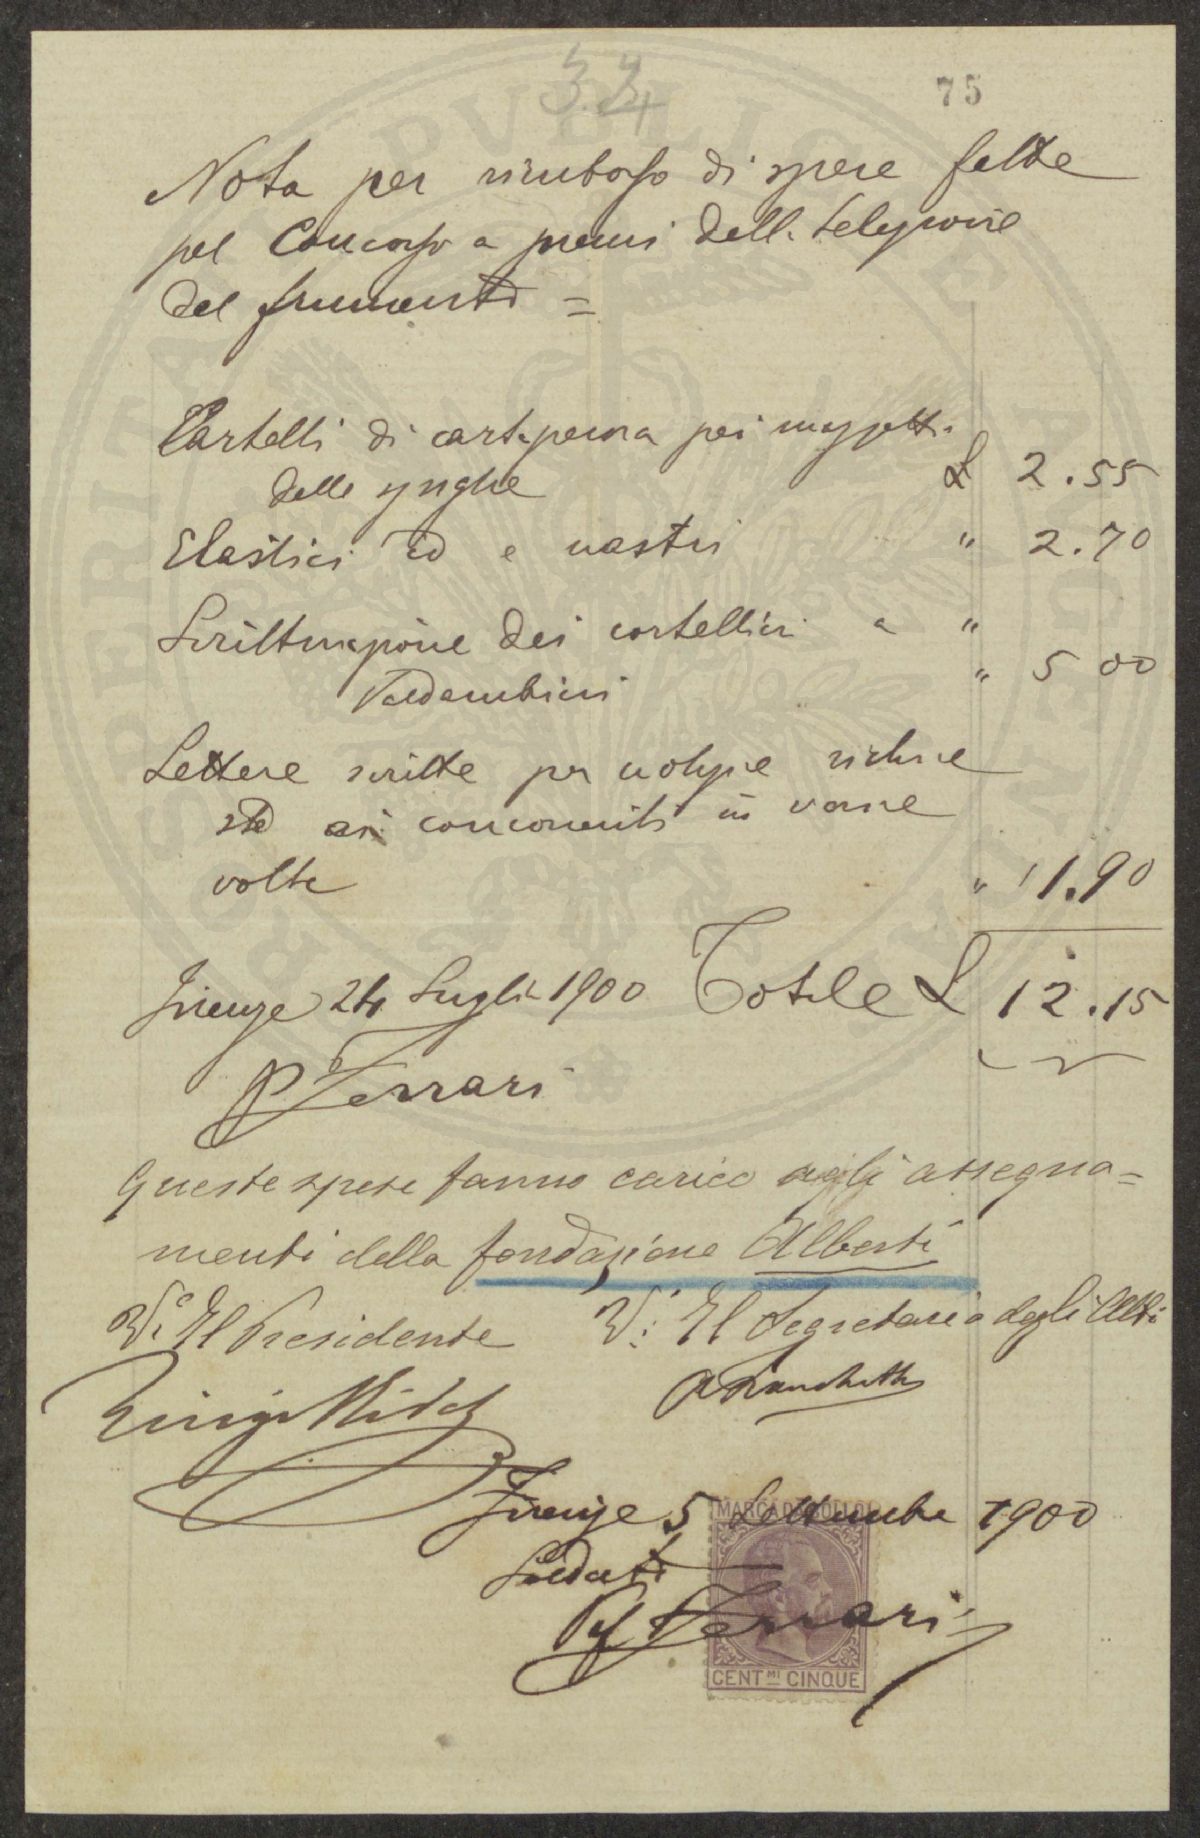 32
75
Nota per rimborso di spese fatte
pel Concorso a premi della selezione
del frumento =
Cartelli di cartapecora pei mazzetti
delle spighe £ 2.55
Elastici id e nastri " 2.70
Scritturazione dei cartellini a "
Valdambrini " 5 00
Lettere scritte per notizie richie
ste ai concorrenti in varie
volte " 1.90
Firenze 24 Luglio 1900 Totale £ 12.15
P Ferrari
Queste spese fanno carico agli assegna=
menti della fondazione Alberti
V.° Il Presidente V.° Il Segretario degli Atti
Luigi
Firenze 5 Settembre 1900
Saldato
P Ferrari
MARCA DA BOLLO
CENT.MI CINQUE
PROSPERITATI PVBLICAE AVGENDAE